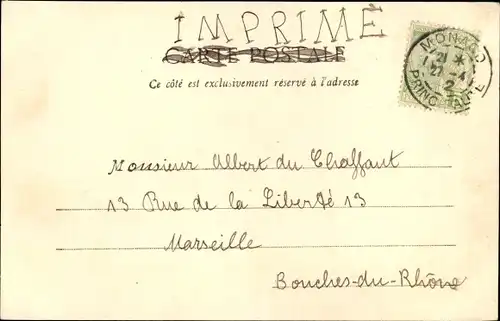 IMPRIMÉ
CARTE POSTALE
Ce côté est exclusivement réservé à l'adresse
MONACO
21
PRINCIPAUTÉ
Monsieur Albert du Chaffaut
13 Rue de la Liberté 13
Marseille
Bouches-du-Rhône